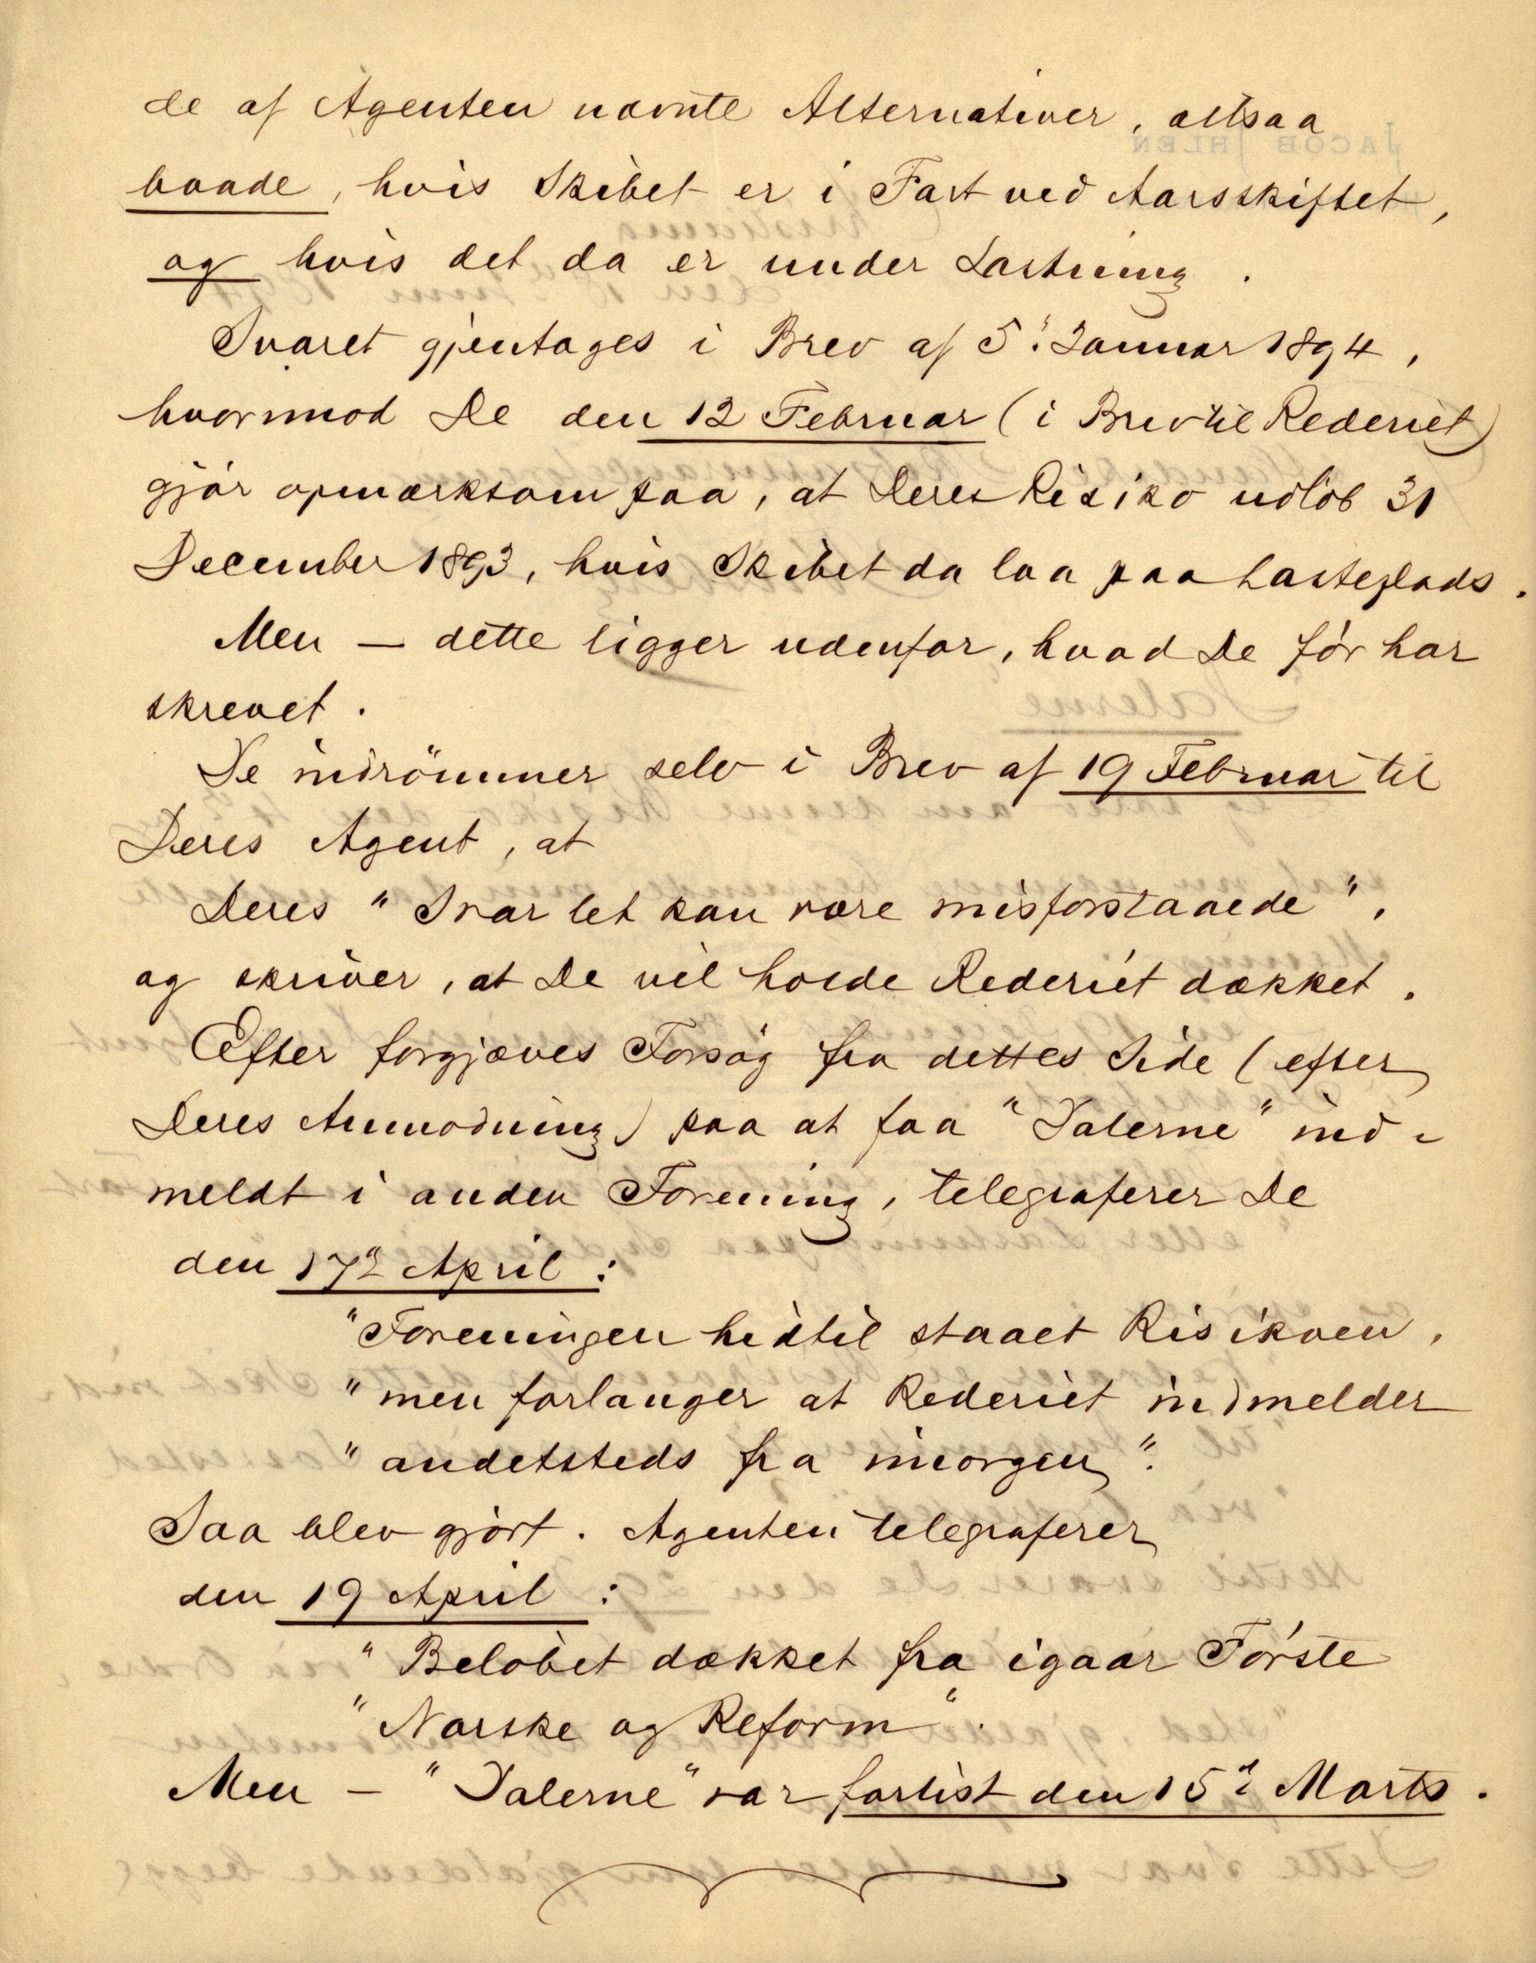 de af Agenten nævnte Alternativer, altsaa
baade, hvis Skibet er i Fart ved Aarsskiftet,
og hvis det da er under Lastning.
Svaret gjentages i Brev af 5' Januar 1894,
hvorimod De den 12 Februar (i Brev til Rederiet)
gjör opmærksom paa, at Deres Risiko udlöb 31
December 1893, hvis Skibet da laa paa Lasteplads.
Men — dette ligger udenfor, hvad De för har
skrevet.
De indrömmer selv i Brev af 19 Februar til
Deres Agent, at
Deres "Svar let kan være misforstaaede",
og skriver, at De vil holde Rederiet dækket.
Efter forgjæves Forsög fra dettes Side (efter
Deres Anmodning) paa at faa "Valerne" ind-
meldt i anden Forening, telegraferer De
den 17de April:
"Foreningen hidtil staaet Risikoen,
"men forlanger at Rederiet indmelder
"andetsteds fra imorgen".
Saa blev gjört. Agenten telegraferer
den 19 April:
"Belöbet dækket fra igaar Förste
"Norske og Reform".
Men — "Valerne" var forlist den 15de Marts.
JACOB IHLEN